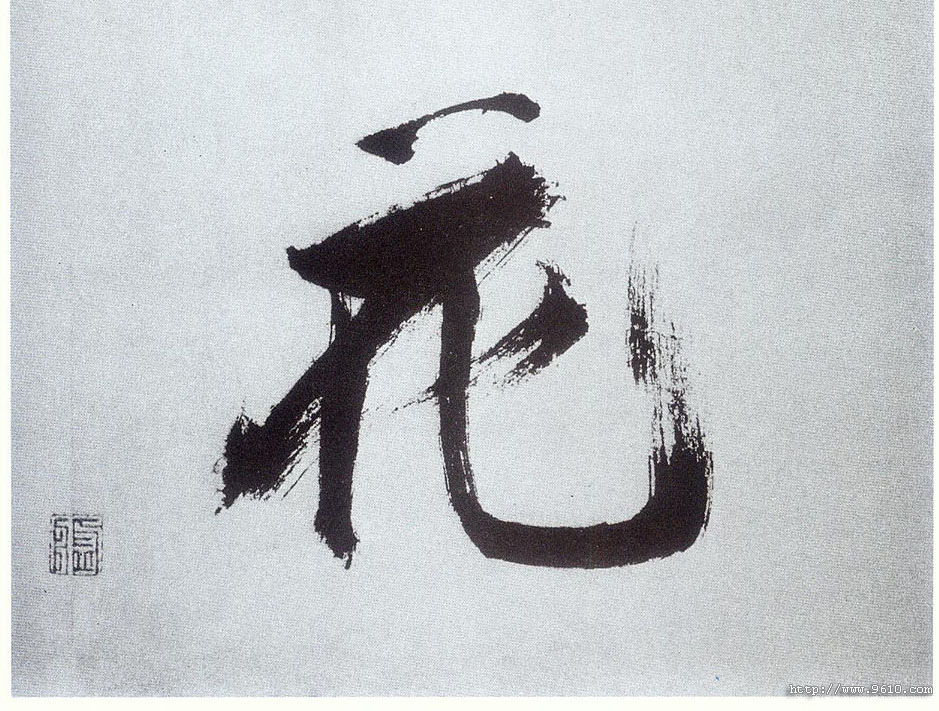 花
http://www.9610.com